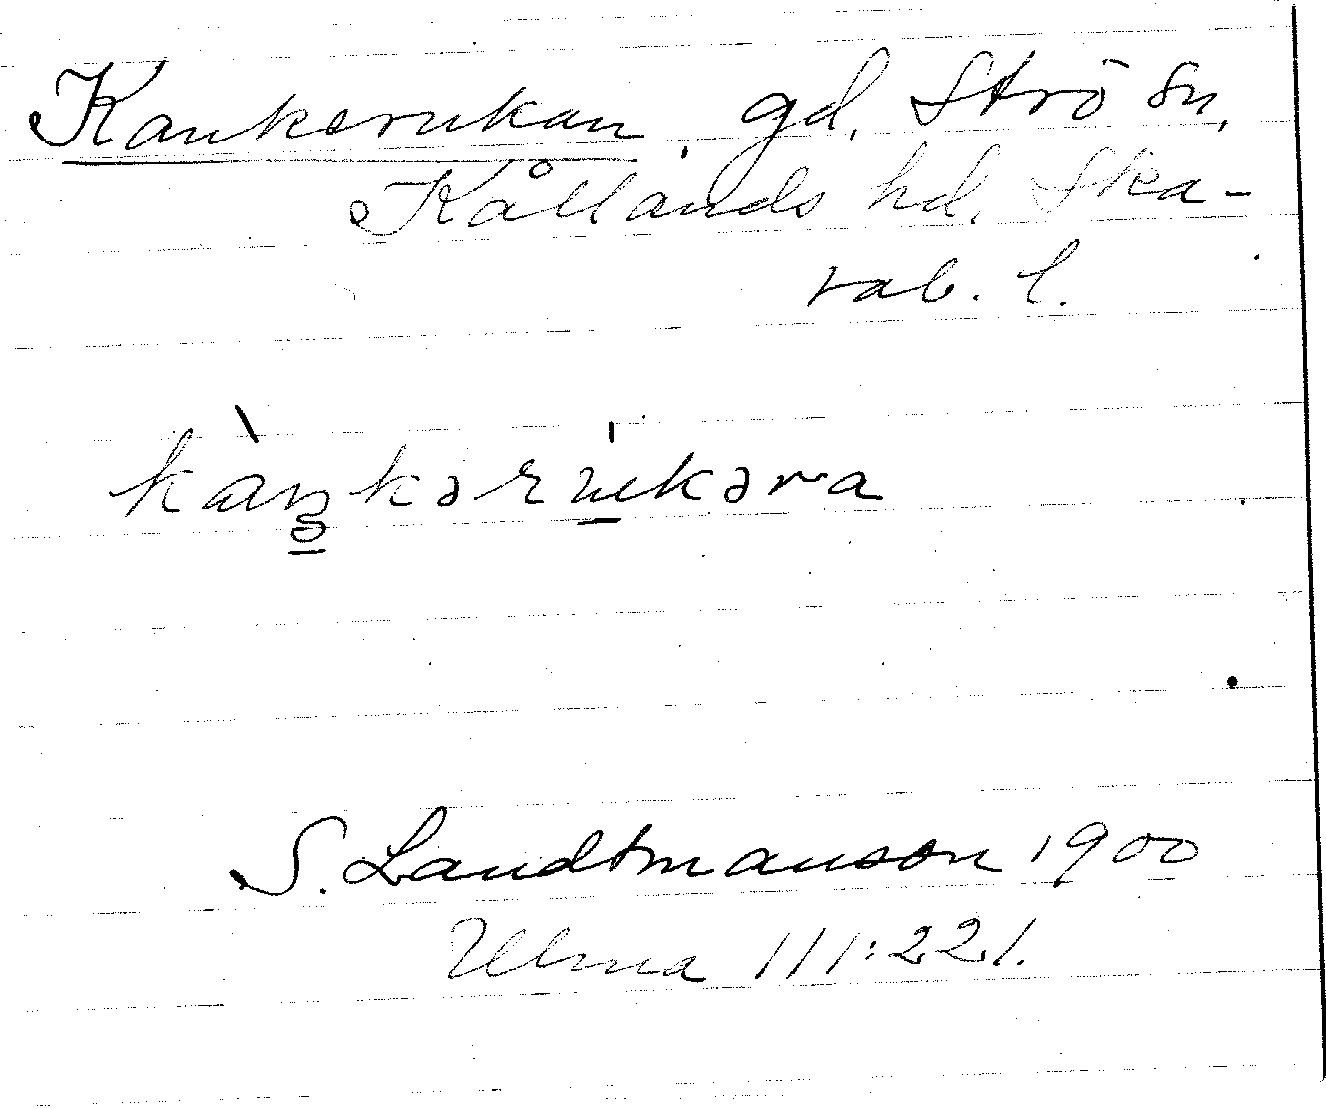 Kankerukan, gd, Strö sn,
Kållands hd. Ska-
rab. l.
kàŋkərúkəra
S. Landtmanson 1900
Ulma 111:221.